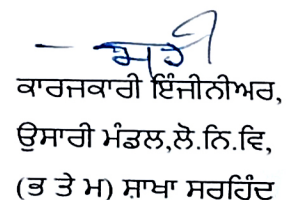 ਸਹੀ
ਕਾਰਜਕਾਰੀ ਇੰਜੀਨੀਅਰ,
ਉਸਾਰੀ ਮੰਡਲ,ਲੋ.ਨਿ.ਵਿ,
(ਭ ਤੇ ਮ) ਸ਼ਾਖਾ ਸਰਹਿੰਦ